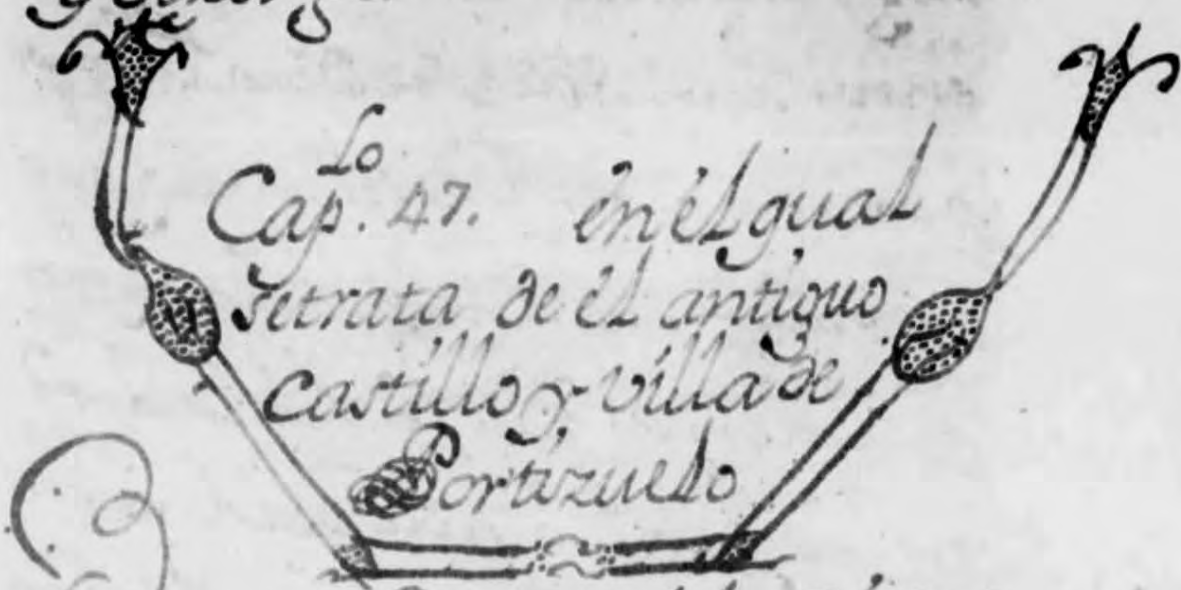 Cap.lo 47. en él qual
setrata de él antiguo
Castillo y villa de
Portizuelo